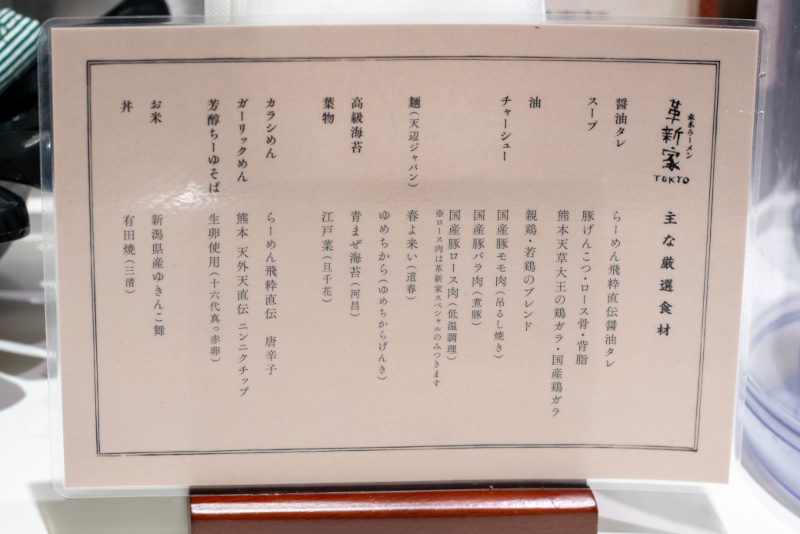 家系ラーメン
革新家
TOKYO
主な厳選食材
醤油タレ
らーめん飛粋直伝醤油タレ
スープ
豚げんこつ・ロース骨・背脂
熊本天草大王の鶏ガラ・国産鶏ガラ
油
親鶏・若鶏のブレンド
チャーシュー
国産豚モモ肉(吊るし焼き)
国産豚バラ肉(煮豚)
国産豚ロース肉(低温調理)
※ロース肉は革新家スペシャルのみつきます
麺(天辺ジャパン)
春よ来い(道春)
ゆめちから(ゆめちからげんき)
高級海苔
青まぜ海苔(河昌)
葉物
江戸菜(旦千花)
カラシめん
らーめん飛粋直伝 唐辛子
ガーリックめん
熊本 天外天直伝 ニンニクチップ
芳醇ちーゆそば
生卵使用(十六代真っ赤卵)
お米
新潟県産ゆきんこ舞
丼
有田焼(三清)